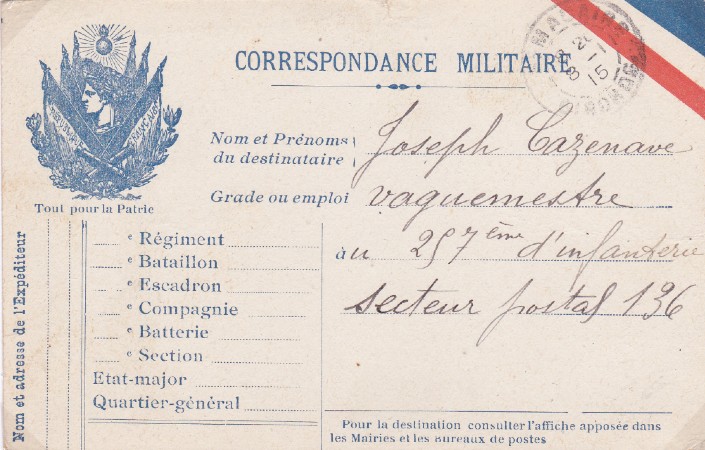 CORRESPONDANCE MILITAIRE
Nom et Prénoms
du destinataire
Joseph Cazenave
Grade ou emploi vaguemestre
au 257ème d'infanterie
secteur postal 136
RÉPUBLIQUE FRANÇAISE
Tout pour la Patrie
Nom et adresse de l'Expéditeur
e Régiment
e Bataillon
e Escadron
e Compagnie
e Batterie
e Section
Etat-major
Quartier-général
Pour la destination consulter l'affiche apposée dans
les Mairies et les Bureaux de postes